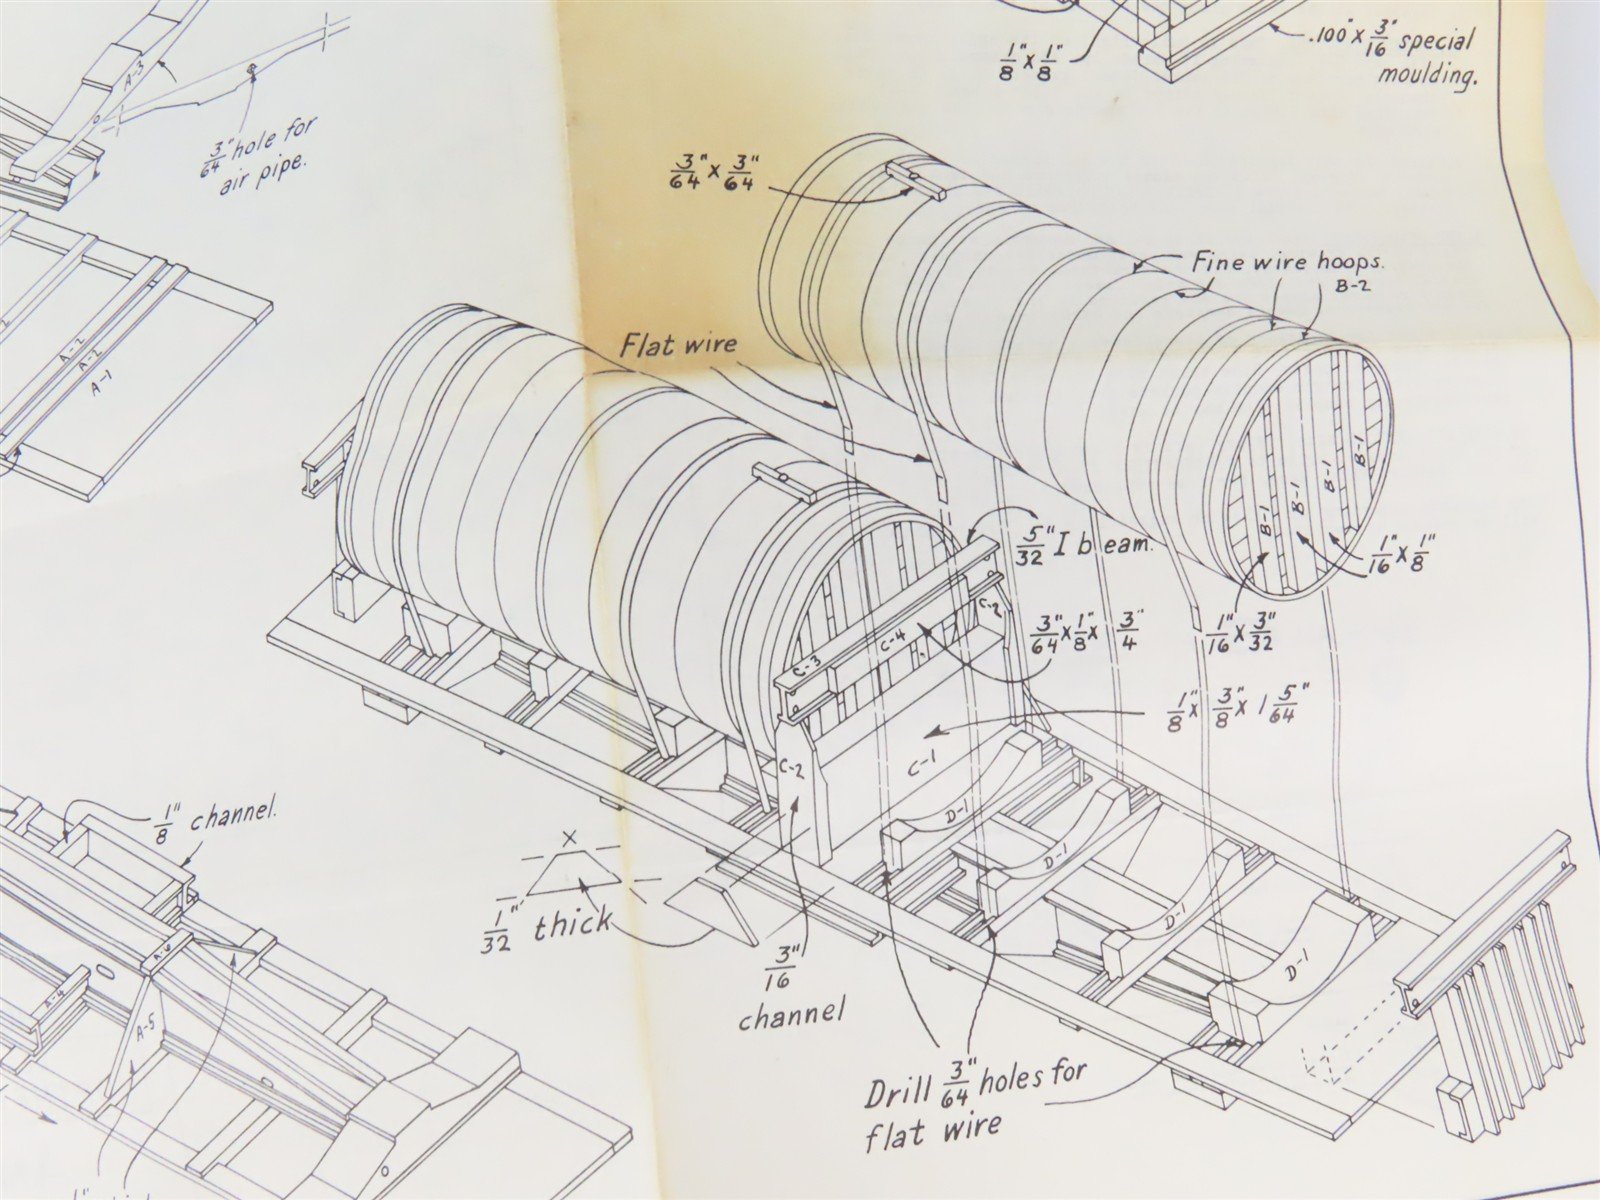 1/8" x 1/8"
.100" x 3/16" special
moulding.
A-3
3/64" hole for
air pipe.
3/64" x 3/64"
Fine wire hoops.
B-2
Flat wire
A-2
A-2
A-1
B-1
B-1
B-1
B-1
5/32" I beam.
1/16" x 1/8"
1/16" x 3/32"
3/64" x 1/8" x 3/4"
C-2
C-4
C-3
1/8" x 3/8" x 1 5/64"
C-2
C-1
D-1
D-1
D-1
D-1
1/8" channel.
X
1/32" thick
3/16"
channel
A-6
A-4
A-5
Drill 3/64" holes for
flat wire